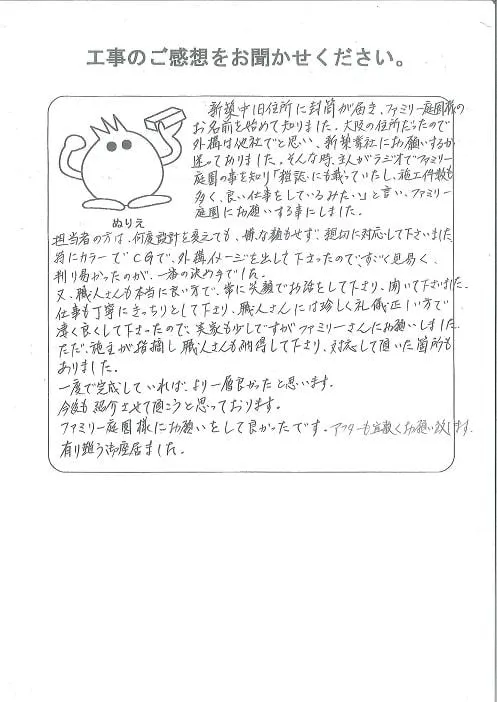 工事のご感想をお聞かせください。
新築中旧住所に封筒が届き、ファミリー庭園様の
お名前を始めて知りました。大阪の住所だったので
外構は他社でと思い、新築業社にお願いするか
迷っておりました。そんな時、主人がラジオでファミリー
庭園の事を知り「雑誌にも載っていたし、施工件数も
多く、良い仕事をしているみたい」と言い、ファミリー
庭園にお願いする事にしました。
ぬりえ
担当者の方は、何度設計を変えても、嫌な顔もせず、親切に対応して下さいました。
特にカラーでCGで、外構イメージを出して下さったので、すごく見易く、
判り易かったのが、一番の決め手でした。
又、職人さんも本当に良い方で、常に笑顔でお話をして下さり、聞いて下さいました。
仕事も丁寧にきっちりとして下さり、職人さんには珍しく礼儀正しい方で
凄く良くして下さったので、実家も少しですがファミリーさんにお願いしました。
ただ、施主が指摘し職人さんも納得して下さり、対応して頂いた箇所も
ありました。
一度で完成していれば、より一層良かったと思います。
今後も紹介させて頂こうと思っております。
ファミリー庭園様にお願いをして良かったです。アフターも宜敷くお願い致します。
有り難う御座居ました。